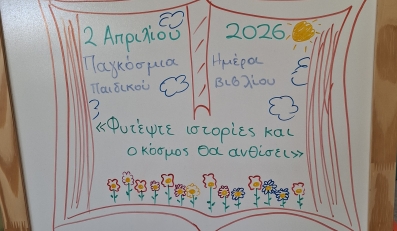 2 Απριλίου 2026
Παγκόσμια Ημέρα
Παιδικού Βιβλίου
«Φυτέψτε ιστορίες και
ο κόσμος θα ανθίσει»